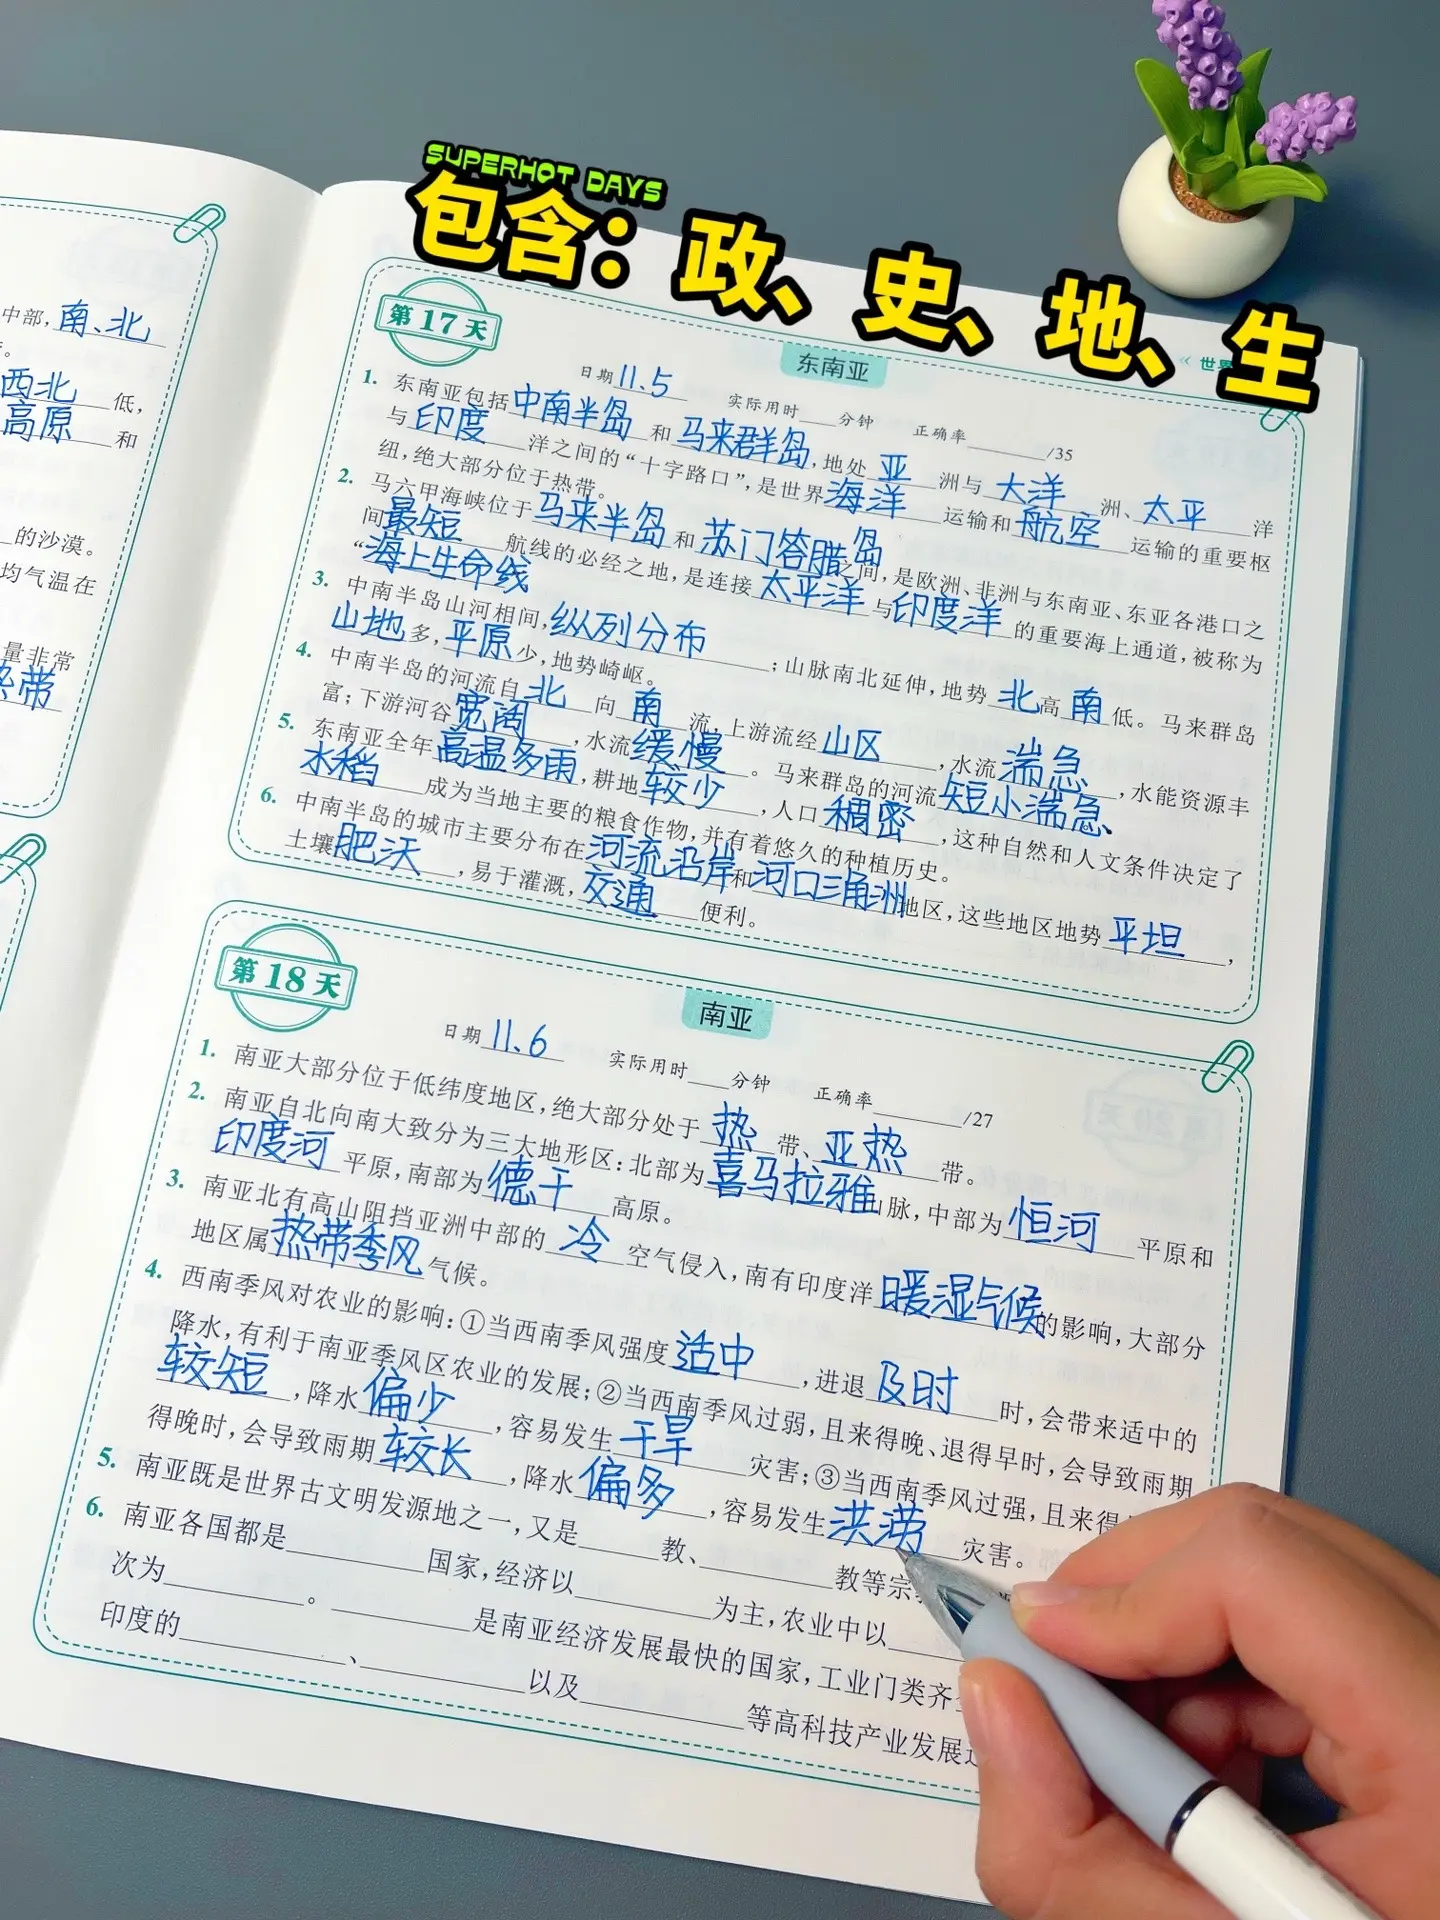 SUPERHOT DAYS
包含：政、史、地、生
中部，南、北
西北低，
高原和
的沙漠。
均气温在
量非常
热带
第17天
东南亚
世界
日期11.5 实际用时____分钟 正确率____/35
1. 东南亚包括中南半岛和马来群岛，地处亚洲与大洋洲、太平洋
与印度洋之间的“十字路口”，是世界海洋运输和航空运输的重要枢
纽，绝大部分位于热带。
2. 马六甲海峡位于马来半岛和苏门答腊岛之间，是欧洲、非洲与东南亚、东亚各港口之
间最短航线的必经之地，是连接太平洋与印度洋的重要海上通道，被称为
“海上生命线
3. 中南半岛山河相间，纵列分布；山脉南北延伸，地势北高南低。马来群岛
山地多，平原少，地势崎岖。
4. 中南半岛的河流自北向南流，上游流经山区，水流湍急，水能资源丰
富；下游河谷宽阔，水流缓慢。马来群岛的河流短小湍急、
5. 东南亚全年高温多雨，耕地较少，人口稠密，这种自然和人文条件决定了
水稻成为当地主要的粮食作物，并有着悠久的种植历史。
6. 中南半岛的城市主要分布在河流沿岸和河口涌洲地区，这些地区地势平坦，
土壤肥沃，易于灌溉，交通便利。
第18天
南亚
日期11.6 实际用时____分钟 正确率____/27
1. 南亚大部分位于低纬度地区，绝大部分处于热带、亚热带。
2. 南亚自北向南大致分为三大地形区：北部为喜马拉雅山脉，中部为恒河平原和
印度河平原，南部为德干高原。
3. 南亚北有高山阻挡亚洲中部的冷空气侵入，南有印度洋暖湿气候的影响，大部分
地区属热带季风气候。
4. 西南季风对农业的影响：①当西南季风强度适中，进退及时时，会带来适中的
降水，有利于南亚季风区农业的发展；②当西南季风过弱，且来得晚、退得早时，会导致雨期
较短，降水偏少，容易发生干旱灾害；③当西南季风过强，且来得
得晚时，会导致雨期较长，降水偏多，容易发生洪涝灾害。
5. 南亚既是世界古文明发源地之一，又是____教、____教等宗
6. 南亚各国都是____国家，经济以____为主，农业中以____
次为____。____是南亚经济发展最快的国家，工业门类齐
印度的____、____以及____等高科技产业发展